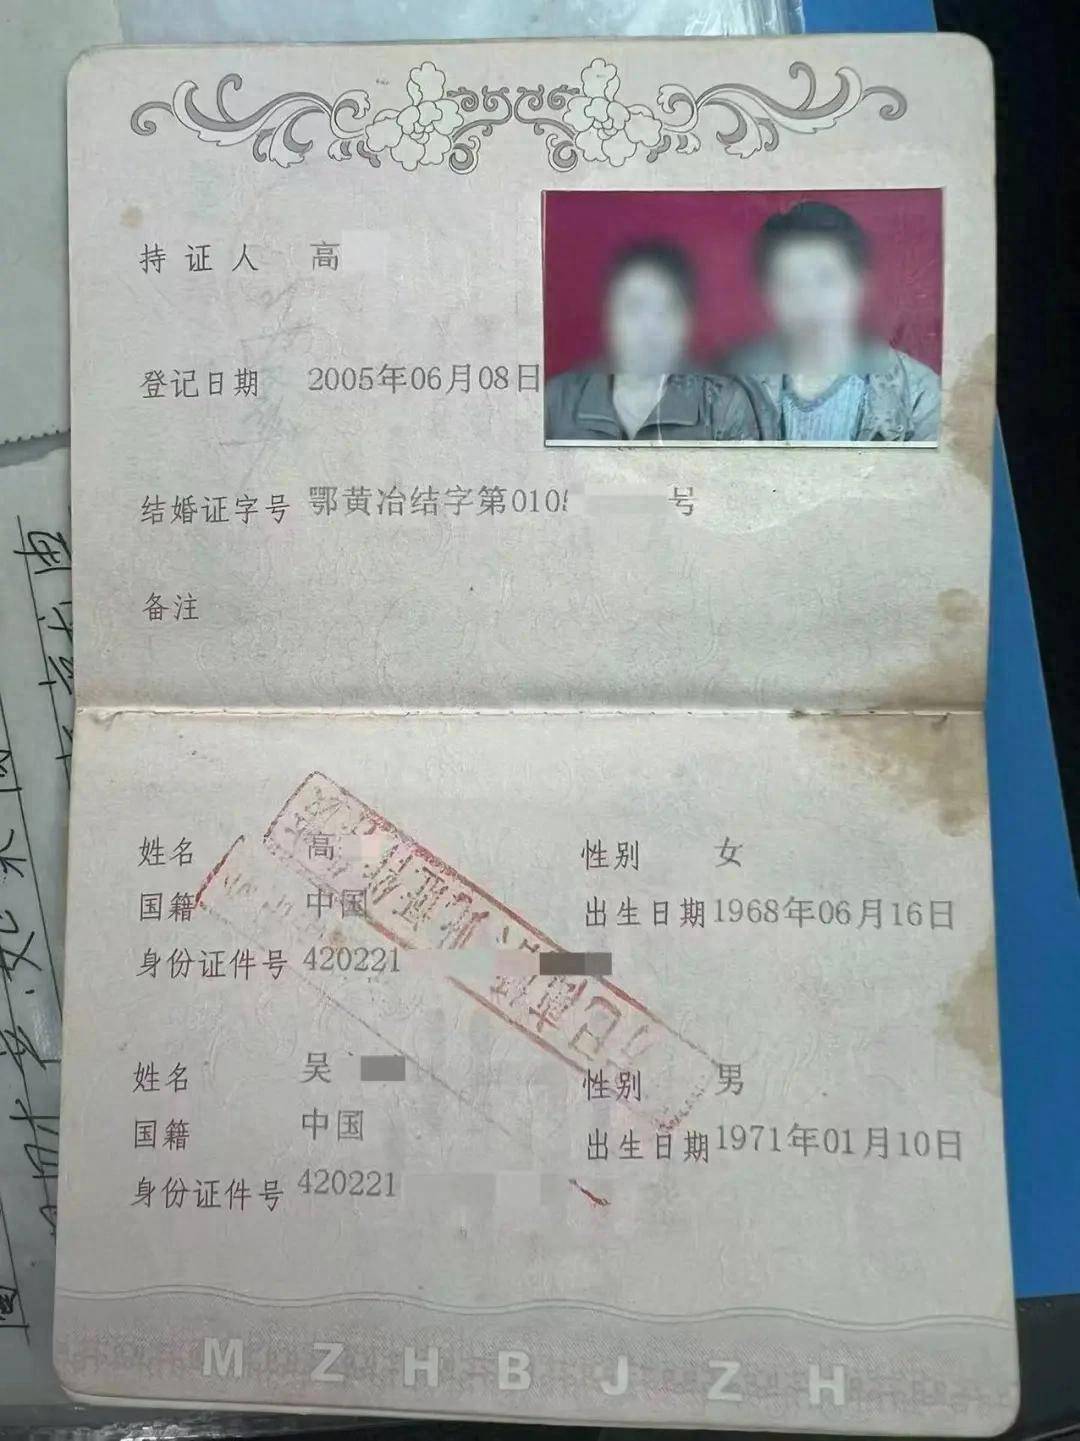 持证人 高
登记日期 2005年06月08日
结婚证字号 鄂黄冶结字第010 号
备注
姓名 高 性别 女
国籍 中国 出生日期 1968年06月16日
身份证件号 420221
姓名 吴 性别 男
国籍 中国 出生日期 1971年01月10日
身份证件号 420221
MZHBJZH